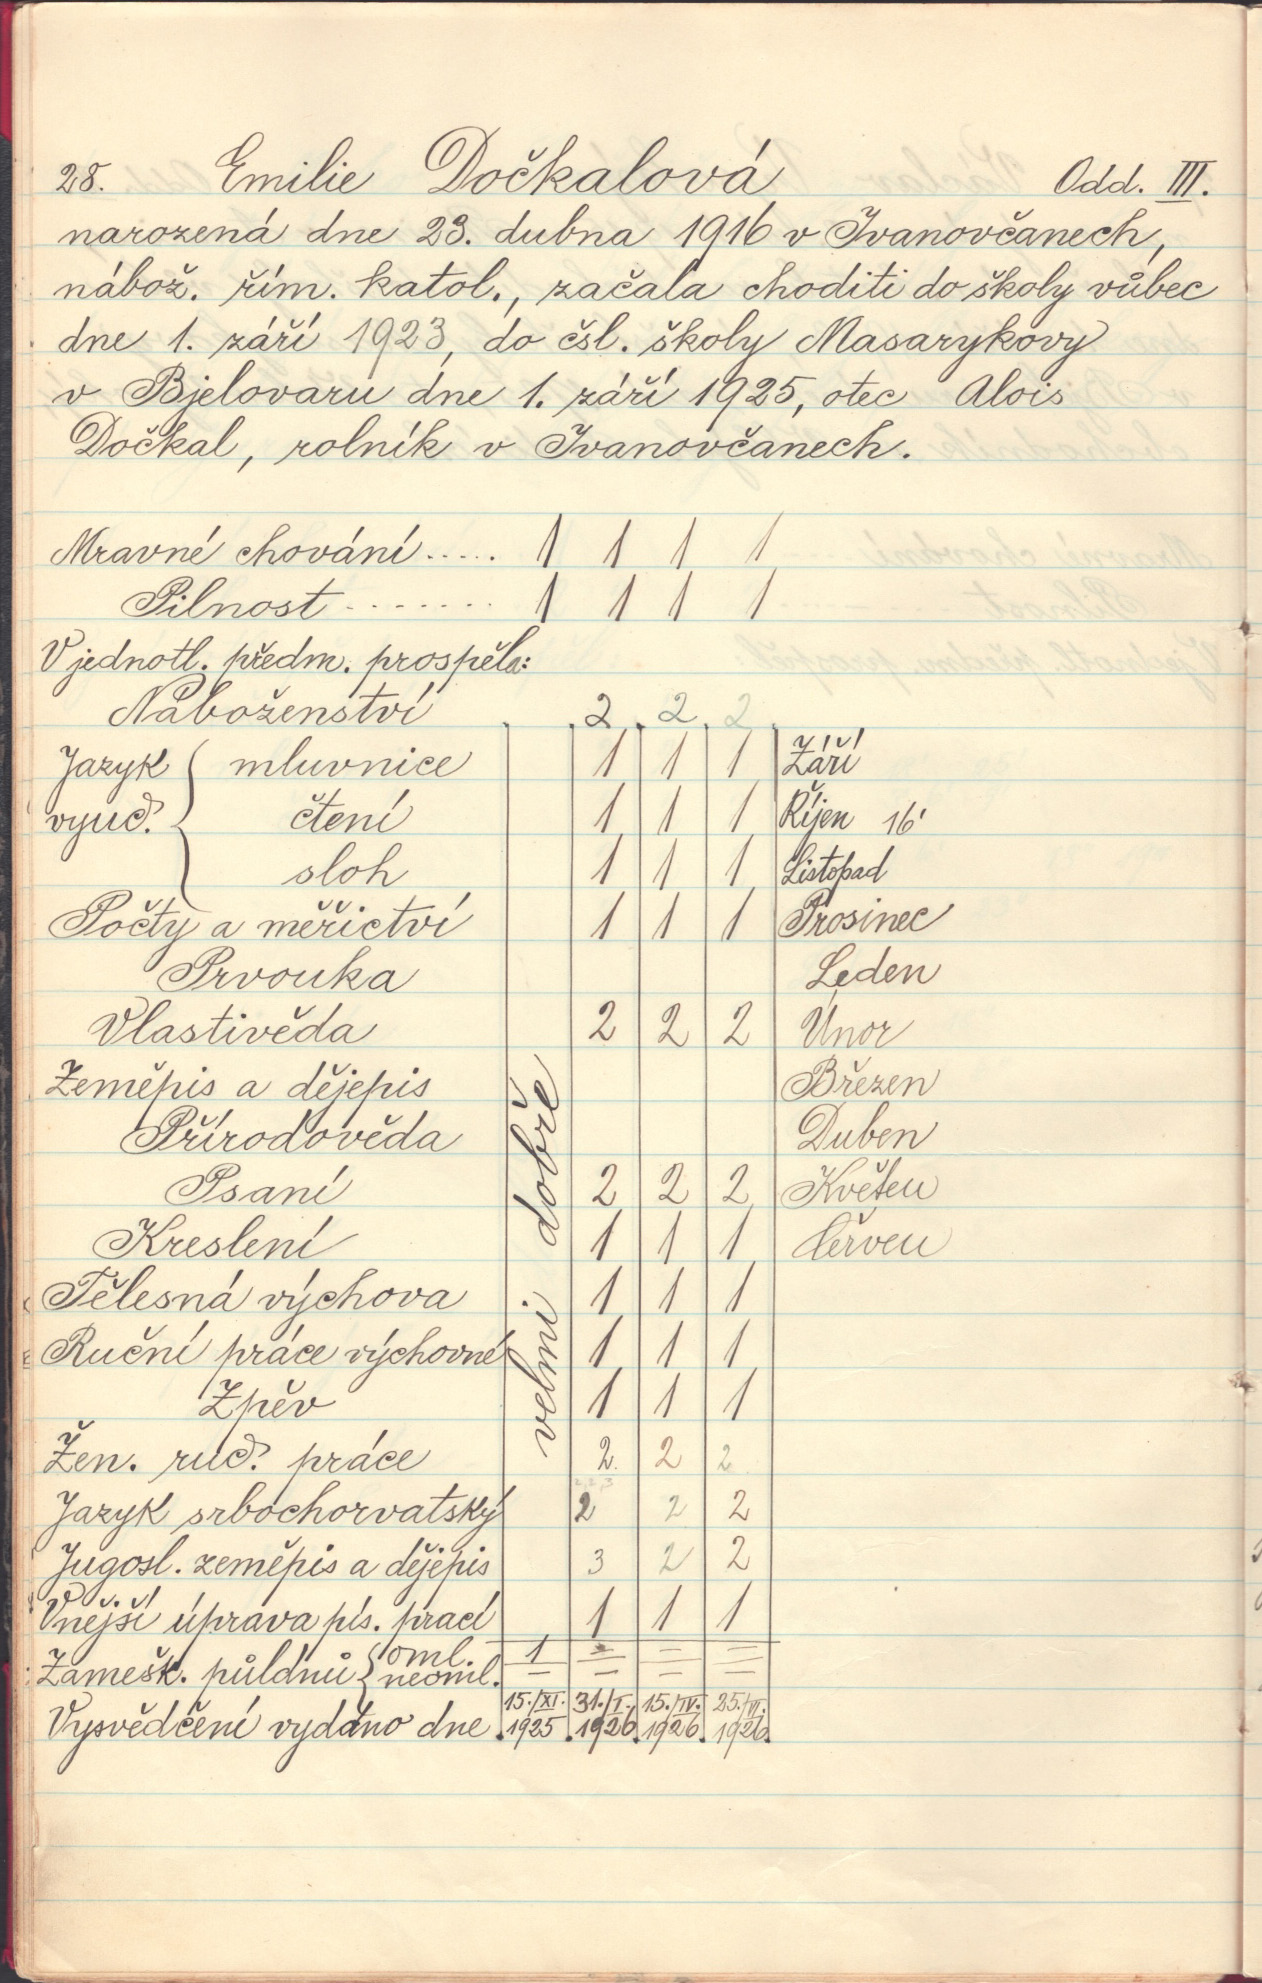 28. Emilie Dočkalová Odd. III.
narozená dne 23. dubna 1916 v Ivanovčanech,
nábož. řím. katol., začala choditi do školy vůbec
dne 1. září 1923, do čsl. školy Masarykovy
v Bjelovaru dne 1. září 1925, otec Alois
Dočkal, rolník v Ivanovčanech.
Mravné chování..... 1 1 1 1
Pilnost........ 1 1 1 1
V jednotl. předm. prospěla:
Náboženství 2 2 2
Jazyk vyuč. { mluvnice 1 1 1 Září
čtení 1 1 1 Říjen 16'
sloh 1 1 1 Listopad
Počty a měřictví 1 1 1 Prosinec
Prvouka Leden
Vlastivěda 2 2 2 Únor
Zeměpis a dějepis Březen
Přírodověda Duben
Psaní 2 2 2 Květen
Kreslení 1 1 1 Červen
Tělesná výchova 1 1 1
Ruční práce výchovné 1 1 1
Zpěv 1 1 1
velmi dobře
Žen. ruč. práce 2. 2 2
Jazyk srbochorvatský 2 2 2
Jugosl. zeměpis a dějepis 3 2 2
Vnější úprava pís. prací 1 1 1
Zamešk. půldnů { oml. 1 = = =
neoml. – – = =
Vysvědčení vydáno dne 15./XI. 1925 31./I. 1926 15./IV. 1926 25./VI. 1926